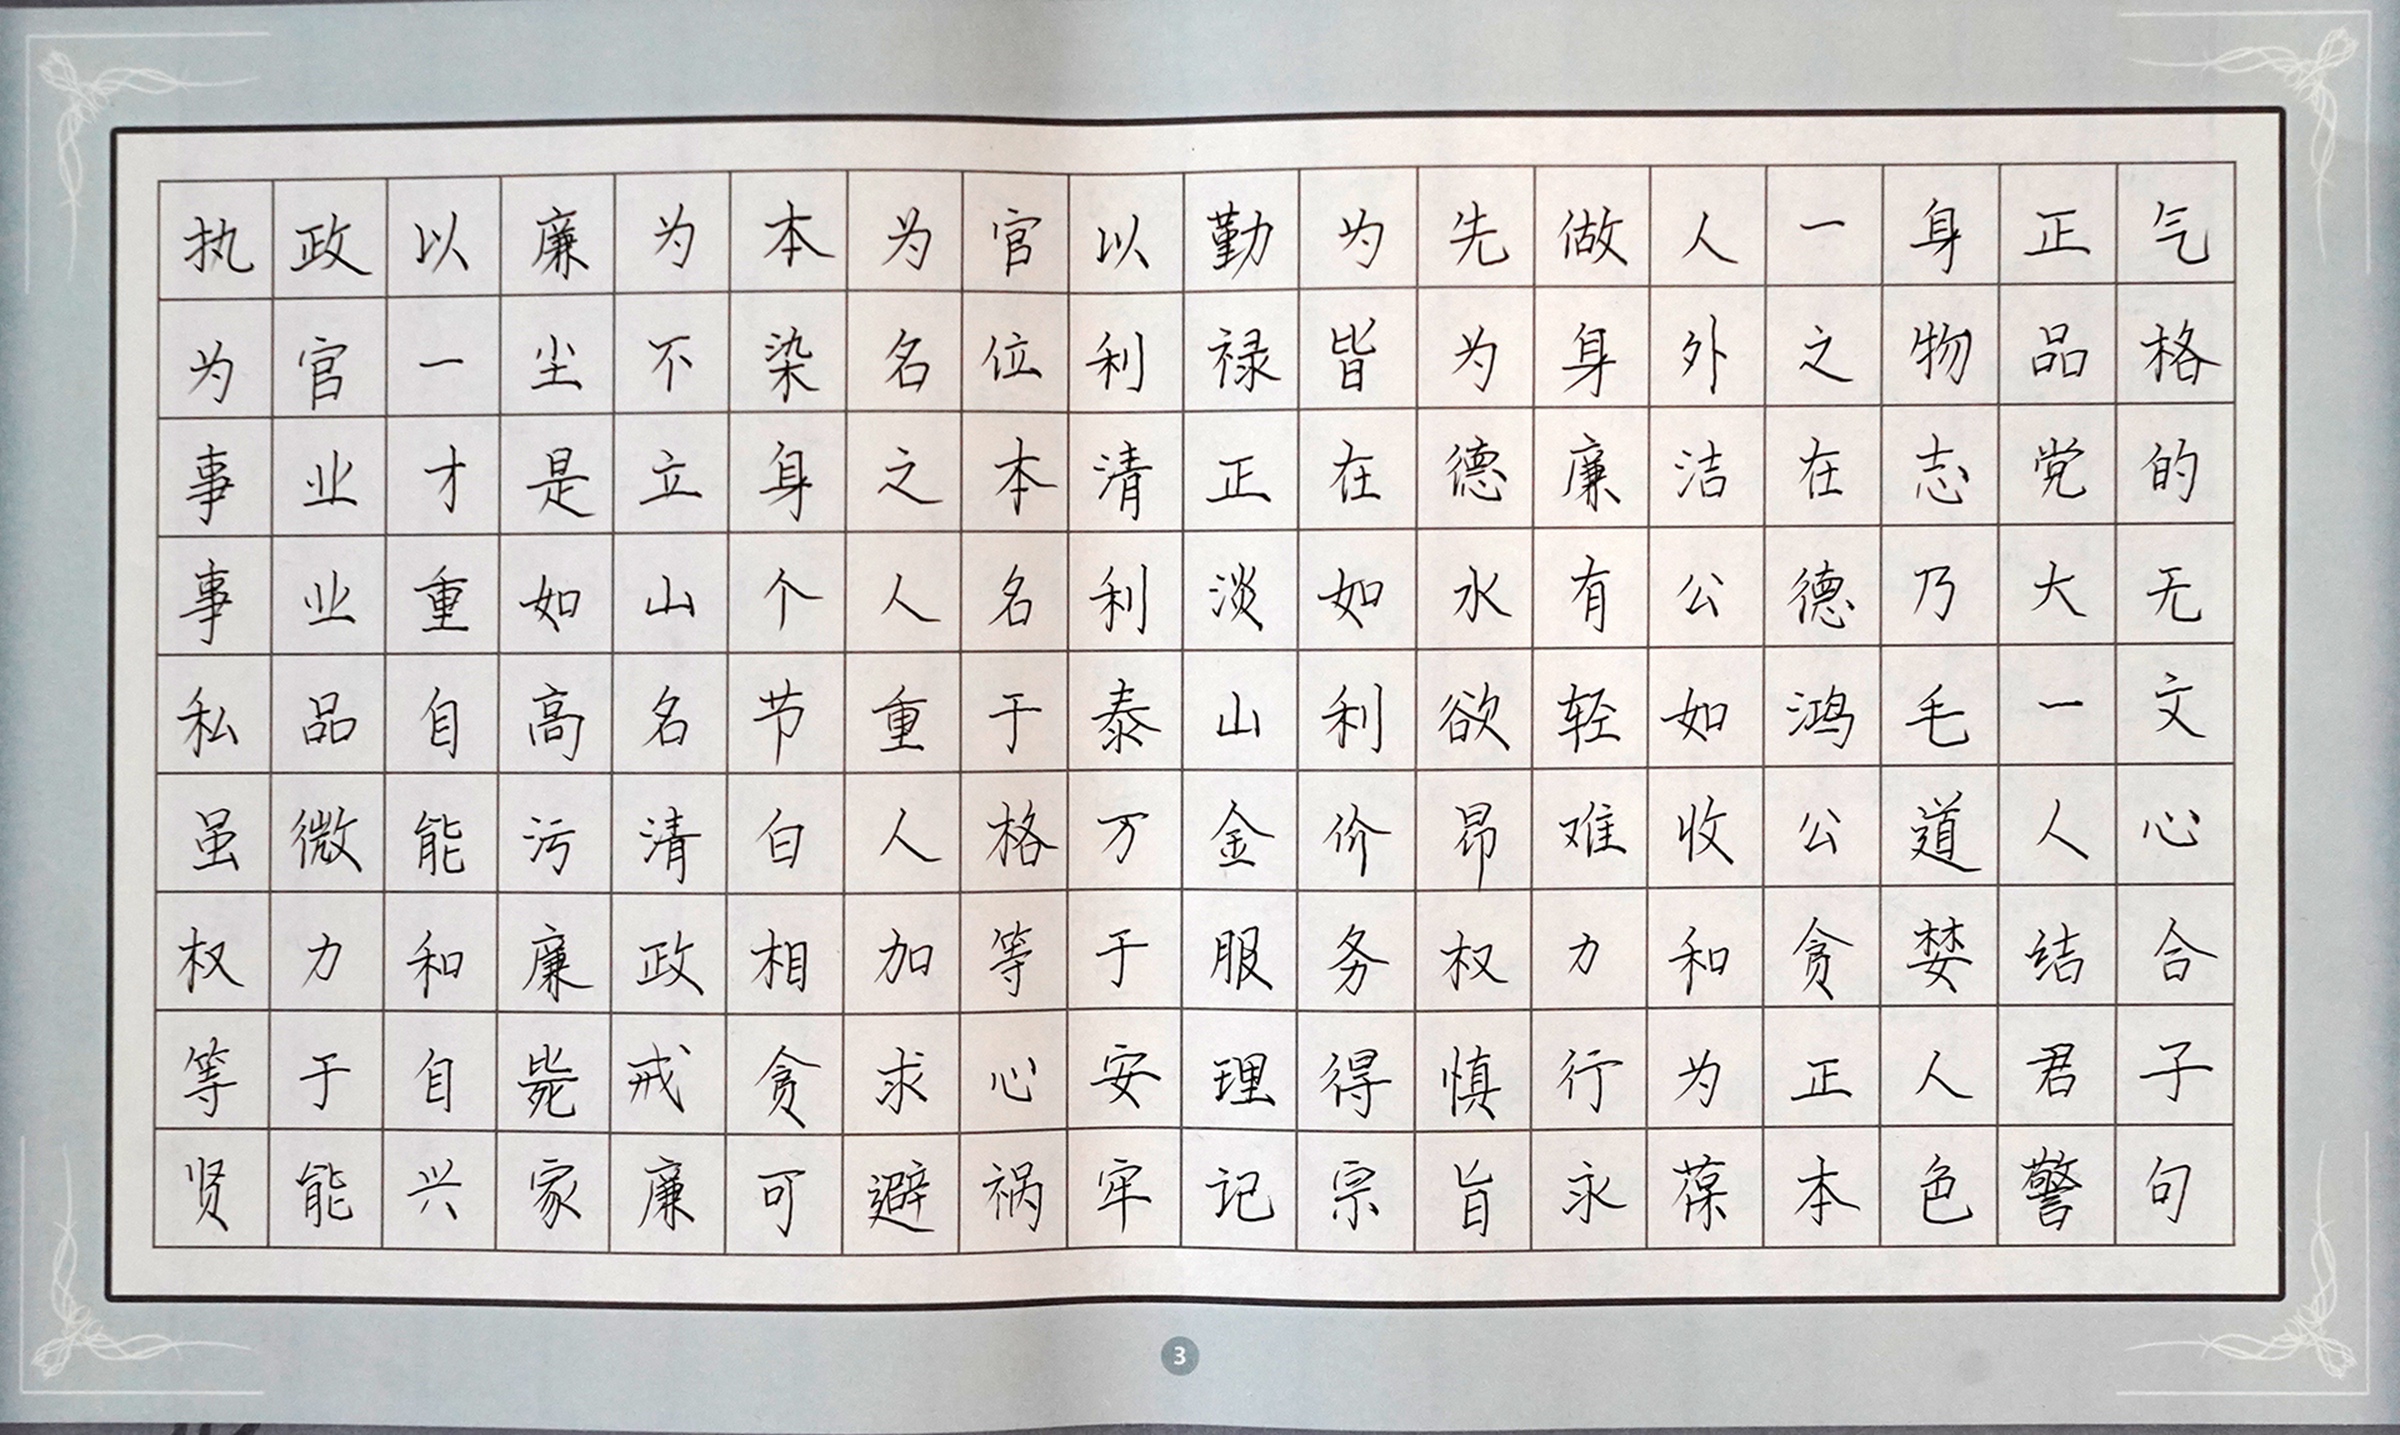 执政以廉为本为官以勤为先做人一身正气
为官一尘不染名位利禄皆为身外之物品格
事业才是立身之本清正在德廉洁在志党的
事业重如山个人名利淡如水有公德乃大无
私品自高名节重于泰山利欲轻如鸿毛一文
虽微能污清白人格万金价昂难收公道人心
权力和廉政相加等于服务权力和贪婪结合
等于自毙戒贪求心安理得慎行为正人君子
贤能兴家廉可避祸牢记宗旨永葆本色警句
3